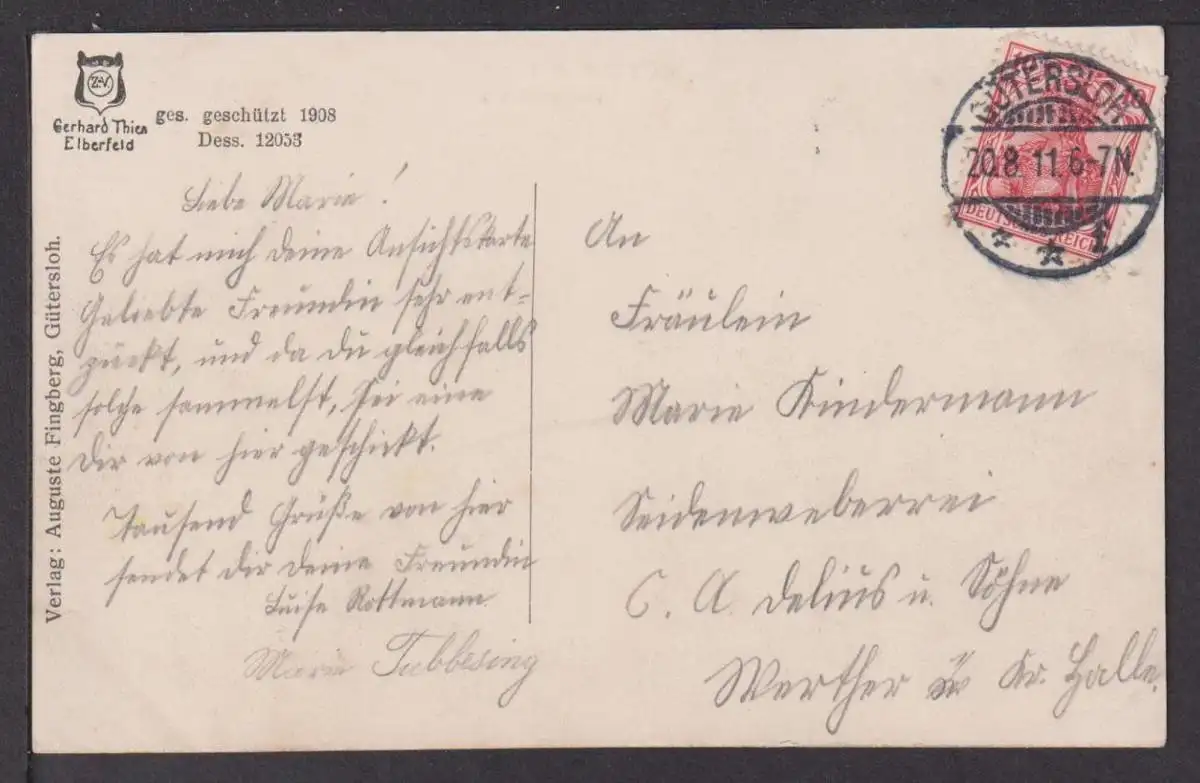 Z.V.
Gerhard Thien
Elberfeld
ges. geschützt 1908
Dess. 12053
Verlag: Auguste Fingberg, Gütersloh.
Liebe Marie!
Es hat mich deine Ansichtskarte
Geliebte Freundin sehr ent-
zückt, und da du gleichfalls
solche sammelst, sei eine
Dir von hier geschickt.
Tausend Grüße von hier
sendet dir deine Freundin
Luise Rottmann
Marie Tubbesing
GÜTERSLOH
20.8.11.6-7N.
* * 1
10
DEUTSCHES REICH
An
Fräulein
Marie Kindermann
Seidenweberrei
C. A. Delius u. Söhne
Werther Kr. Halle.